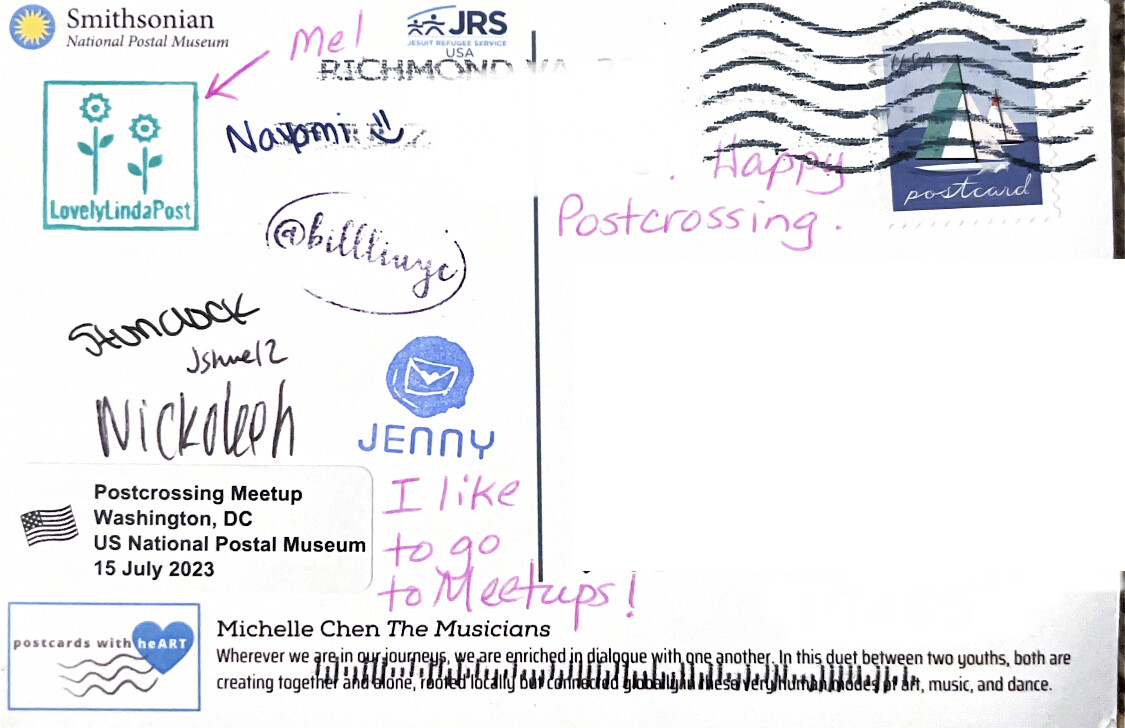 Smithsonian
National Postal Museum
Me!
JRS
JESUIT REFUGEE SERVICE
USA
RICHMOND VA
LovelyLindaPost
Naomi
@billlinyc
Jshwe12
Nickoleph
JENNY
Postcrossing Meetup
Washington, DC
US National Postal Museum
15 July 2023
I like
to go
to Meetups!
USA
postcard
Happy
Postcrossing.
postcards with heART
Michelle Chen The Musicians
Wherever we are in our journeys, we are enriched in dialogue with one another. In this duet between two youths, both are
creating together and alone, rooted locally but connected globally in these very human modes of art, music, and dance.